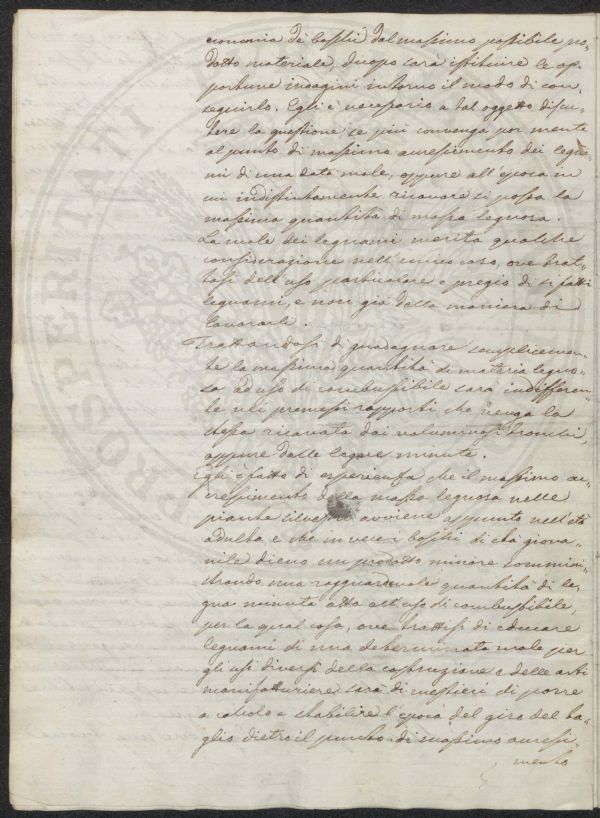 economia de' boschi dal massimo possibile pro-
dotto materiale, d'uopo sarà istituire le op-
portune indagini intorno il modo di con-
seguirlo. Egli è necessario a tal oggetto discu-
tere la questione se più convenga por mente
al punto di massimo accrescimento dei legna-
mi di una data mole, oppure all'epoca in
cui indistintamente ricavare si possa la
massima quantità di massa legnosa.
La mole dei legnami merita qualche
considerazione nell'unico caso, ove trat-
tasi dell'uso particolare e pregio di siffatti
legnami, e non già della maniera di
lavorarli.
Trattandosi di guadagnare semplicemen-
te la massima quantità di materia legno-
sa ad uso di combustibile sarà indifferen-
te nei premessi rapporti che venga la
stessa ricavata dai voluminosi tronchi,
oppure dalle legne minute.
Egli è fatto di esperienza che il massimo ac-
crescimento della massa legnosa nelle
piante silvestri avviene appunto nell'età
adulta, e che invece i boschi di età giova-
nile dieno un prodotto minore sommini-
strando una ragguardevole quantità di le-
gna minuta atta all'uso di combustibile,
per la qual cosa, ove trattisi di educare
legnami di una determinata mole per
gli usi diversi della costruzione e delle arti
manifatturiere sarà di mestieri di porre
a calcolo e stabilire l'epoca del giro del ta-
glio dietro il punto di massimo accresci-
mento
PROSPERITATI